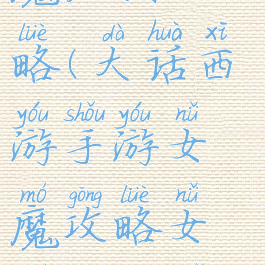 lüè dà huà xī
略(大话西
yóu shǒu yóu nǚ
游手游女
mó gōng lüè nǚ
魔攻略女